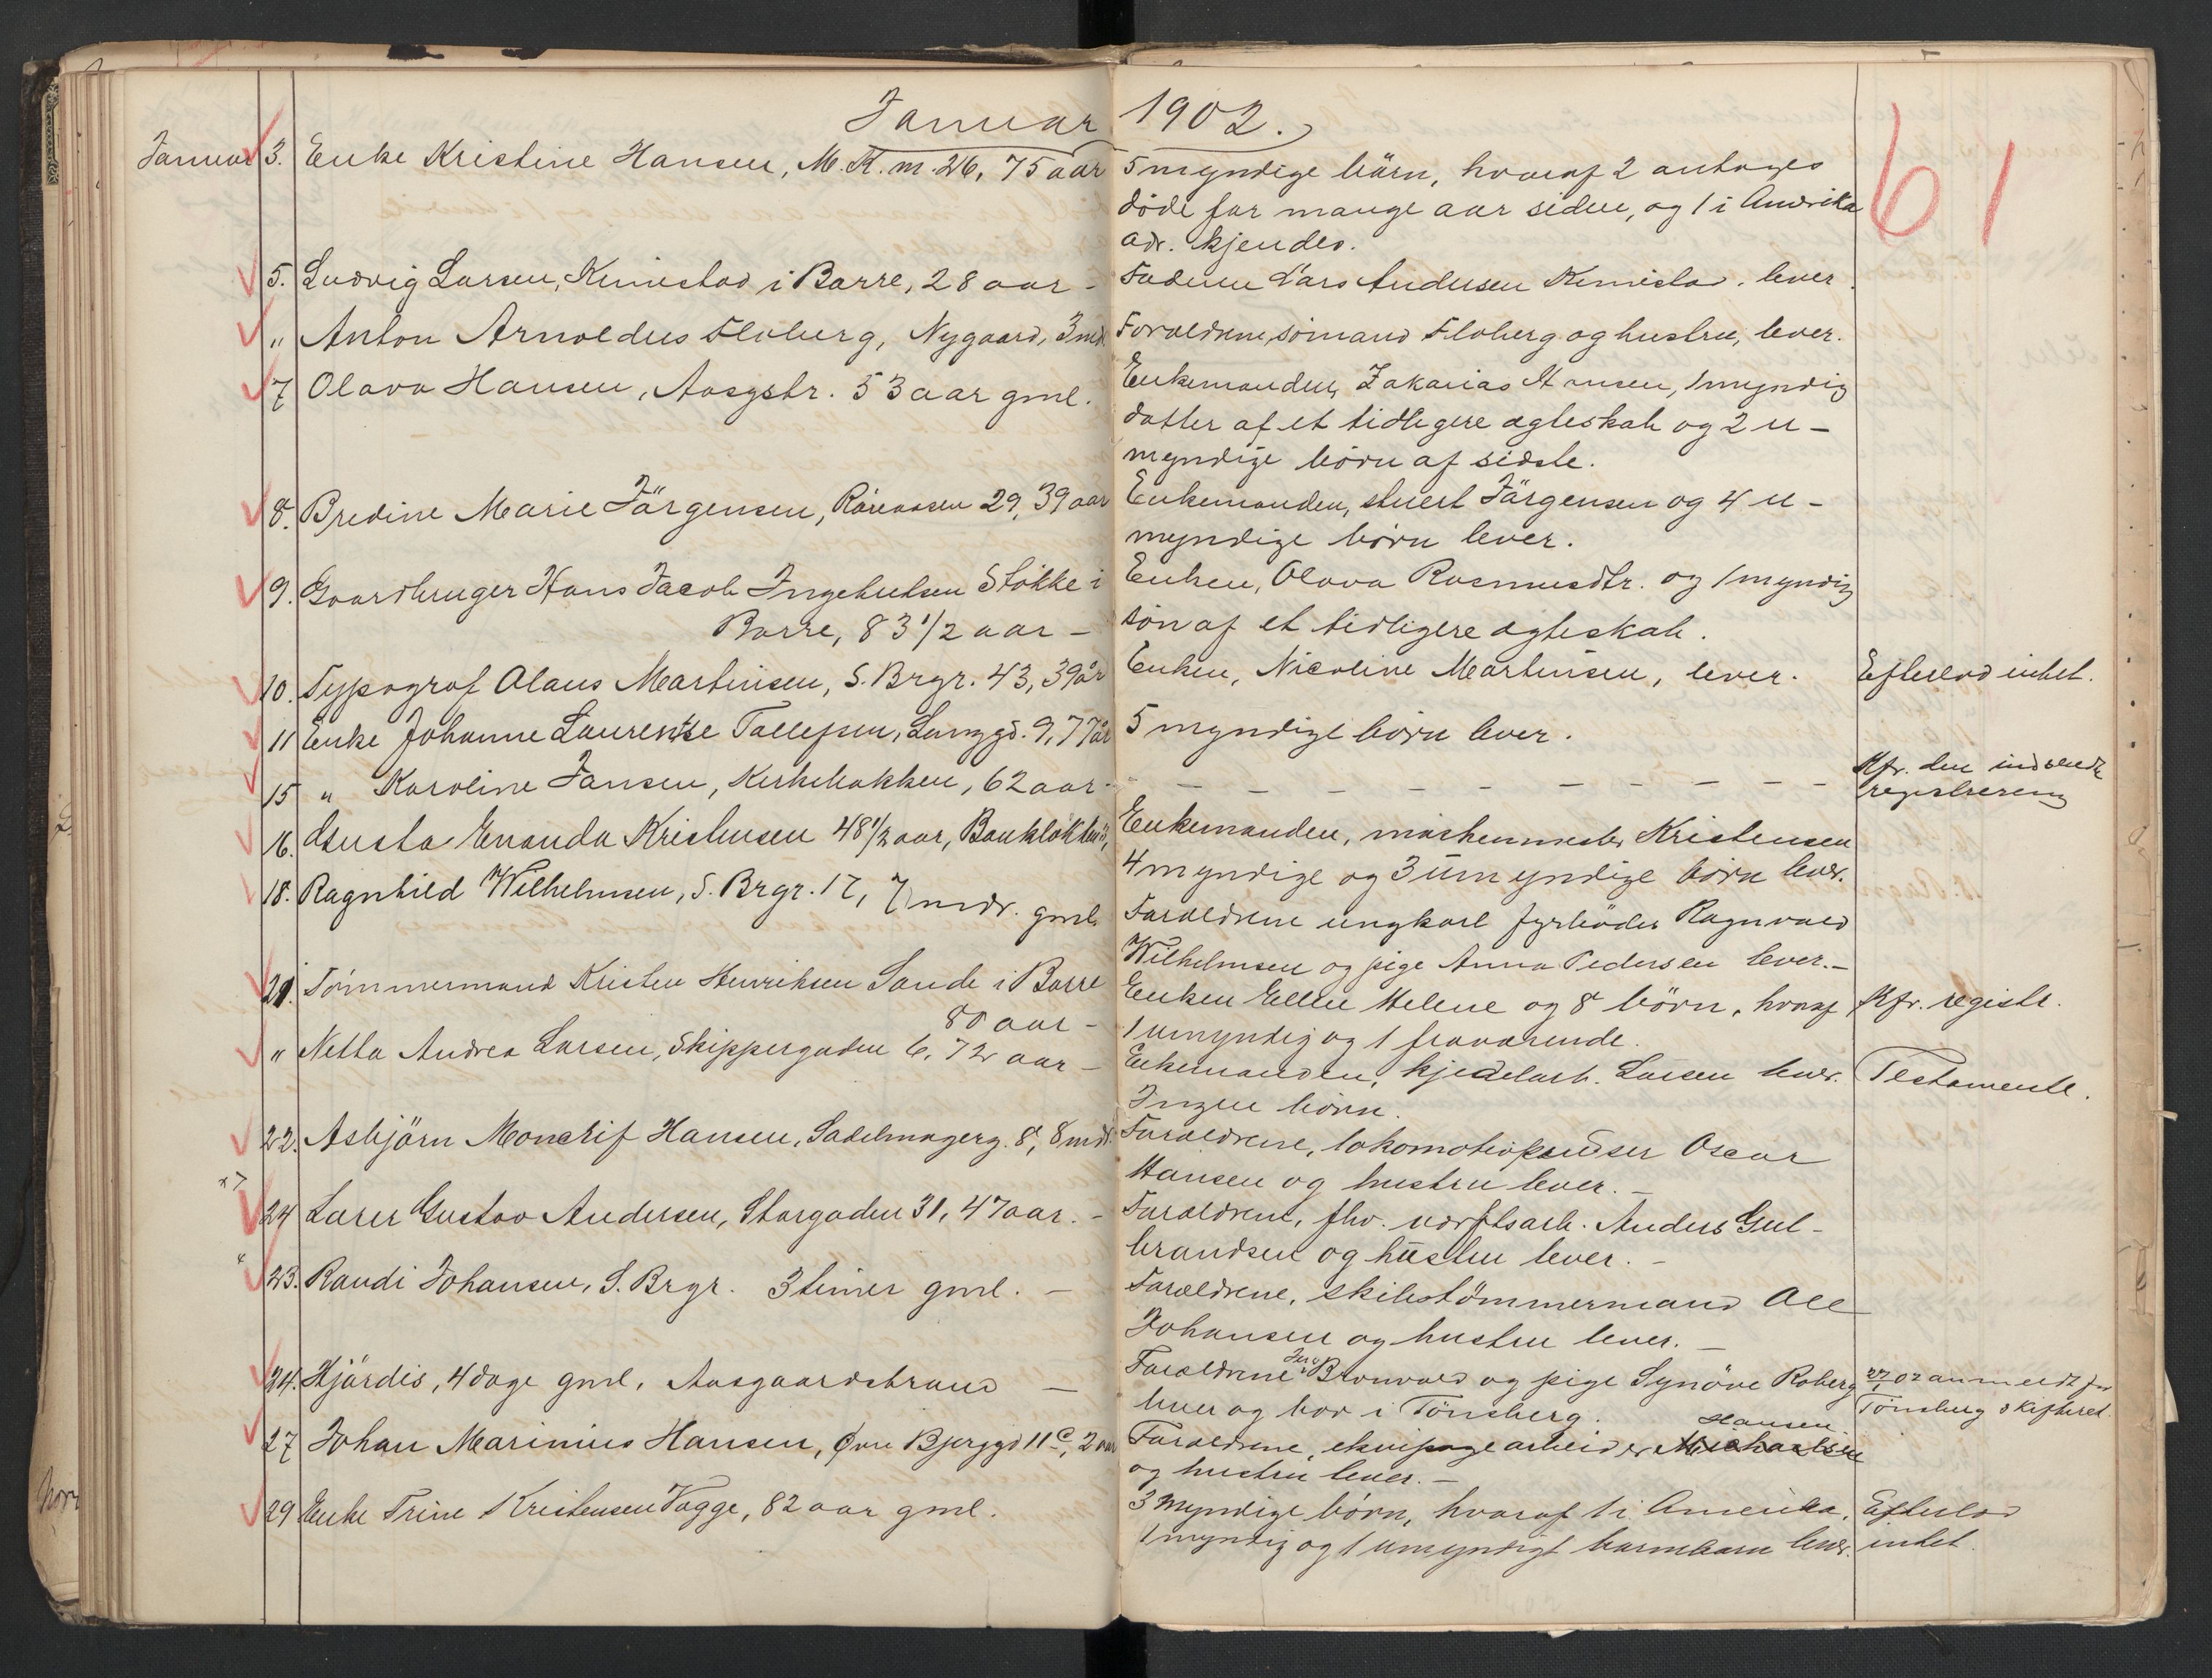 Januar 1902.
61
Januar 3. Enke Kristine Hansen, M. K. m. 26, 75 aar
5 myndige børn, hvoraf 2 antages
døde for mange aar siden, og 1 i Amerika
adr. kjendes.
5. Ludvig Larsen, Kimestad i Borre, 28 aar -
Faderen Lars Andersen Kimestad, lever.
" Anton Arnoldus Floberg, Nygaard, 3 md.
Forældrene, sömand Floberg og hustru, lever.
7 Olava Hansen, Aasgstr. 53 aar gml.
Enkemanden, Zakarias Hansen, 1 myndig
datter af et tidligere ægteskab og 2 u-
myndige börn af sidste.
8. Bredine Marie Jörgensen, 29, 39 aar
Enkemanden, stuert Jörgensen og 4 u-
myndige börn lever.
9. Gaardbruger Hans Jacob Ingebretsen Stokke i
Borre, 83 1/2 aar -
Enken, Olava Rasmusdtr. og 1 myndig
sön af et tidligere ægteskab.
10. Typograf Olaus Martinsen, S. Brgr. 43, 39 år
Enken, Nicoline Martinsen, lever.
Efterlod intet.
11 Enke Johanne Laurentse Tollefsen, Langgd. 9, 77 år
5 myndige börn lever.
15 " Karoline Jansen, Kirkebakken, 62 aar -
- - - - - - - - - -
Kfr. den indsendte
registrering
16. Gusta Enanda Kristensen 48 1/2 aar, Bankløkken,
Enkemanden, maskinmester Kristensen
4 myndige og 3 umyndige börn lever.
18. Ragnhild Wilhelmsen, S. Brgr. 17, 7 mdr. gml.
Forældrene ungkarl fyrböder Ragnvald
Wilhelmsen og pige Anna Pedersen lever. -
21. Tömmermand Kristen Henriksen Sande i Borre
80 aar -
Enken Ellen Helene og 8 börn, hvoraf
1 umyndig og 1 fraværende.
Kfr. registr.
" Netta Andrea Larsen, Skippergaden 6, 72 aar -
Enkemanden, kjedelarb. Larsen lever.
Ingen börn.
Testamente.
22. Asbjörn Moncrif Hansen, Sadelmagerg. 8, 8 mdr.
Forældrene, lokomotivpudser Oscar
Hansen og hustru lever. -
24 Lærer Gustav Andersen, Storgaden 31, 47 aar. -
Forældrene, fhv. værftsarb. Anders Gul-
brandsen og hustru lever. -
23. Randi Johansen, S. Brgr. 3 timer gml. -
Forældrene, skibstömmermand Ole
Johansen og hustru lever. -
24. Hjördis, 4 dage gml, Aasgaardstrand -
Forældrene Bronvald og pige Synöve Roberg
lever og bor i Tönsberg.
27/1 02 anmeldt for
Tönsberg skifteret.
27 Johan Marinius Hansen, Øvre Bjerggd 11 c, 2 aar
Hansen
Forældrene, ekvipagearbeider Michaelsen
og hustru lever. -
29 Enke Trine Kristensen Vagge, 82 aar gml.
3 myndige börn, hvoraf 1 i Amerika,
1 myndig og 1 umyndigt barnebarn lever.
Efterlod
intet.